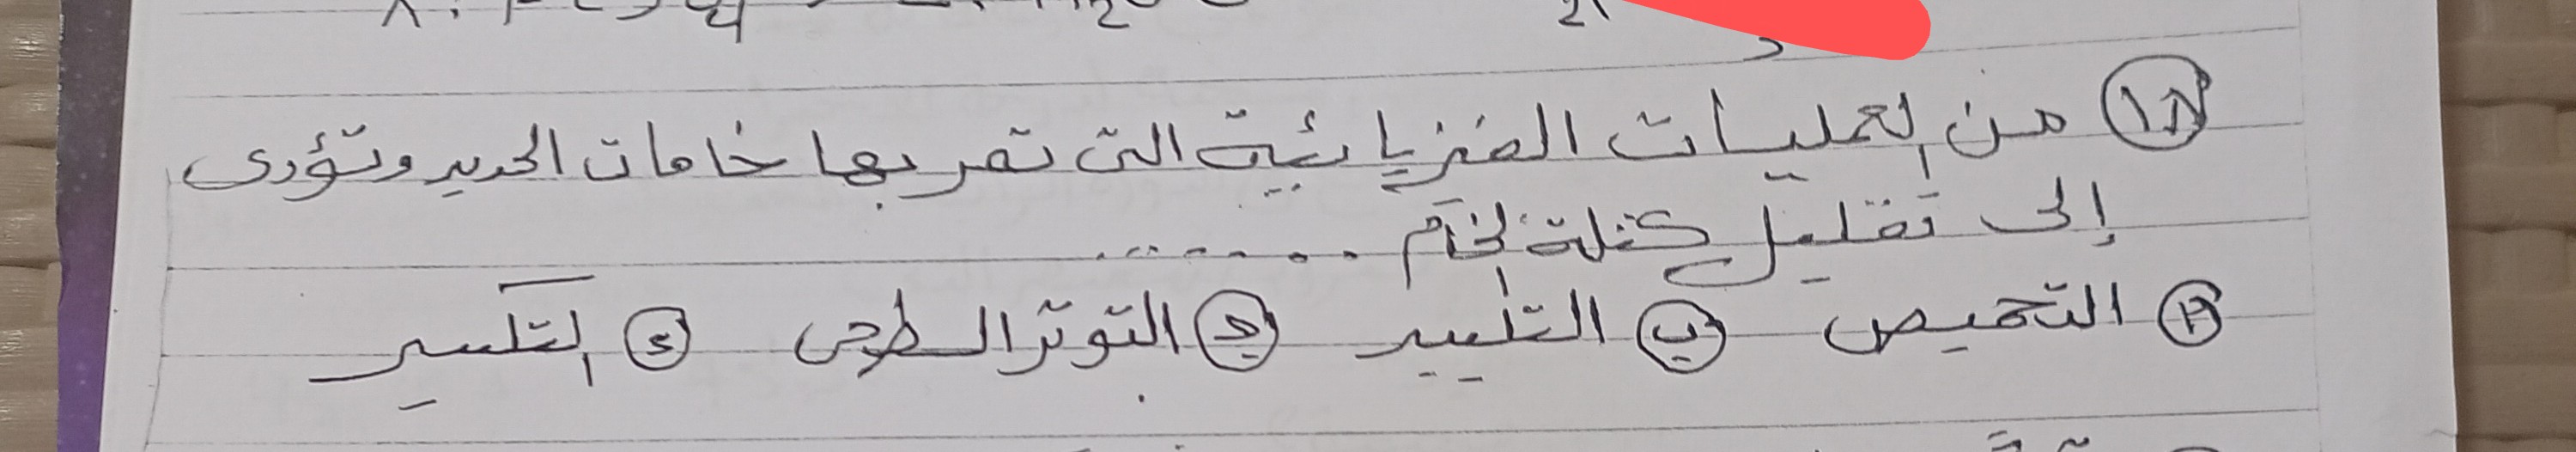 ١٨ من العمليات الفيزيائية التى تمر بها خامات الحديد وتؤدى
إلى تقليل كتلة الخام .......
أ التحميص ب التلبيد جـ التوتر السطحى د التكسير